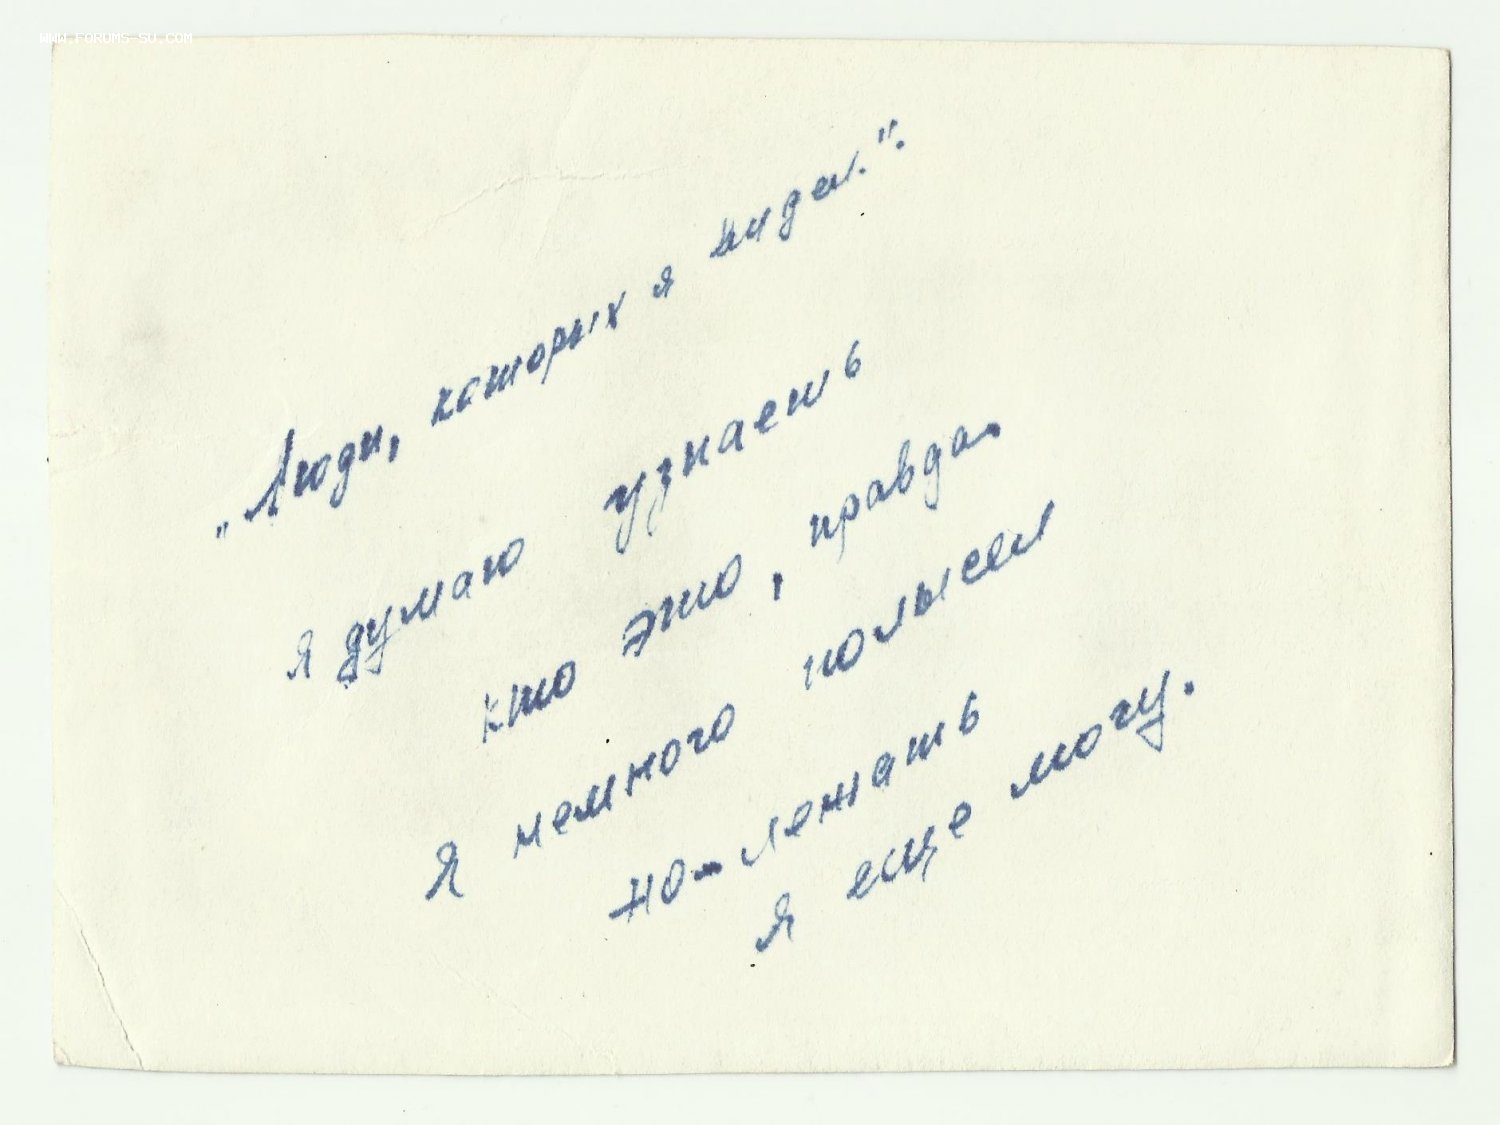 WWW.FORUMS-SU.COM
„Люди, которых я видел.".
я думаю узнаешь
кто это, правда.
Я немного полысел
но - лежать
я еще могу.